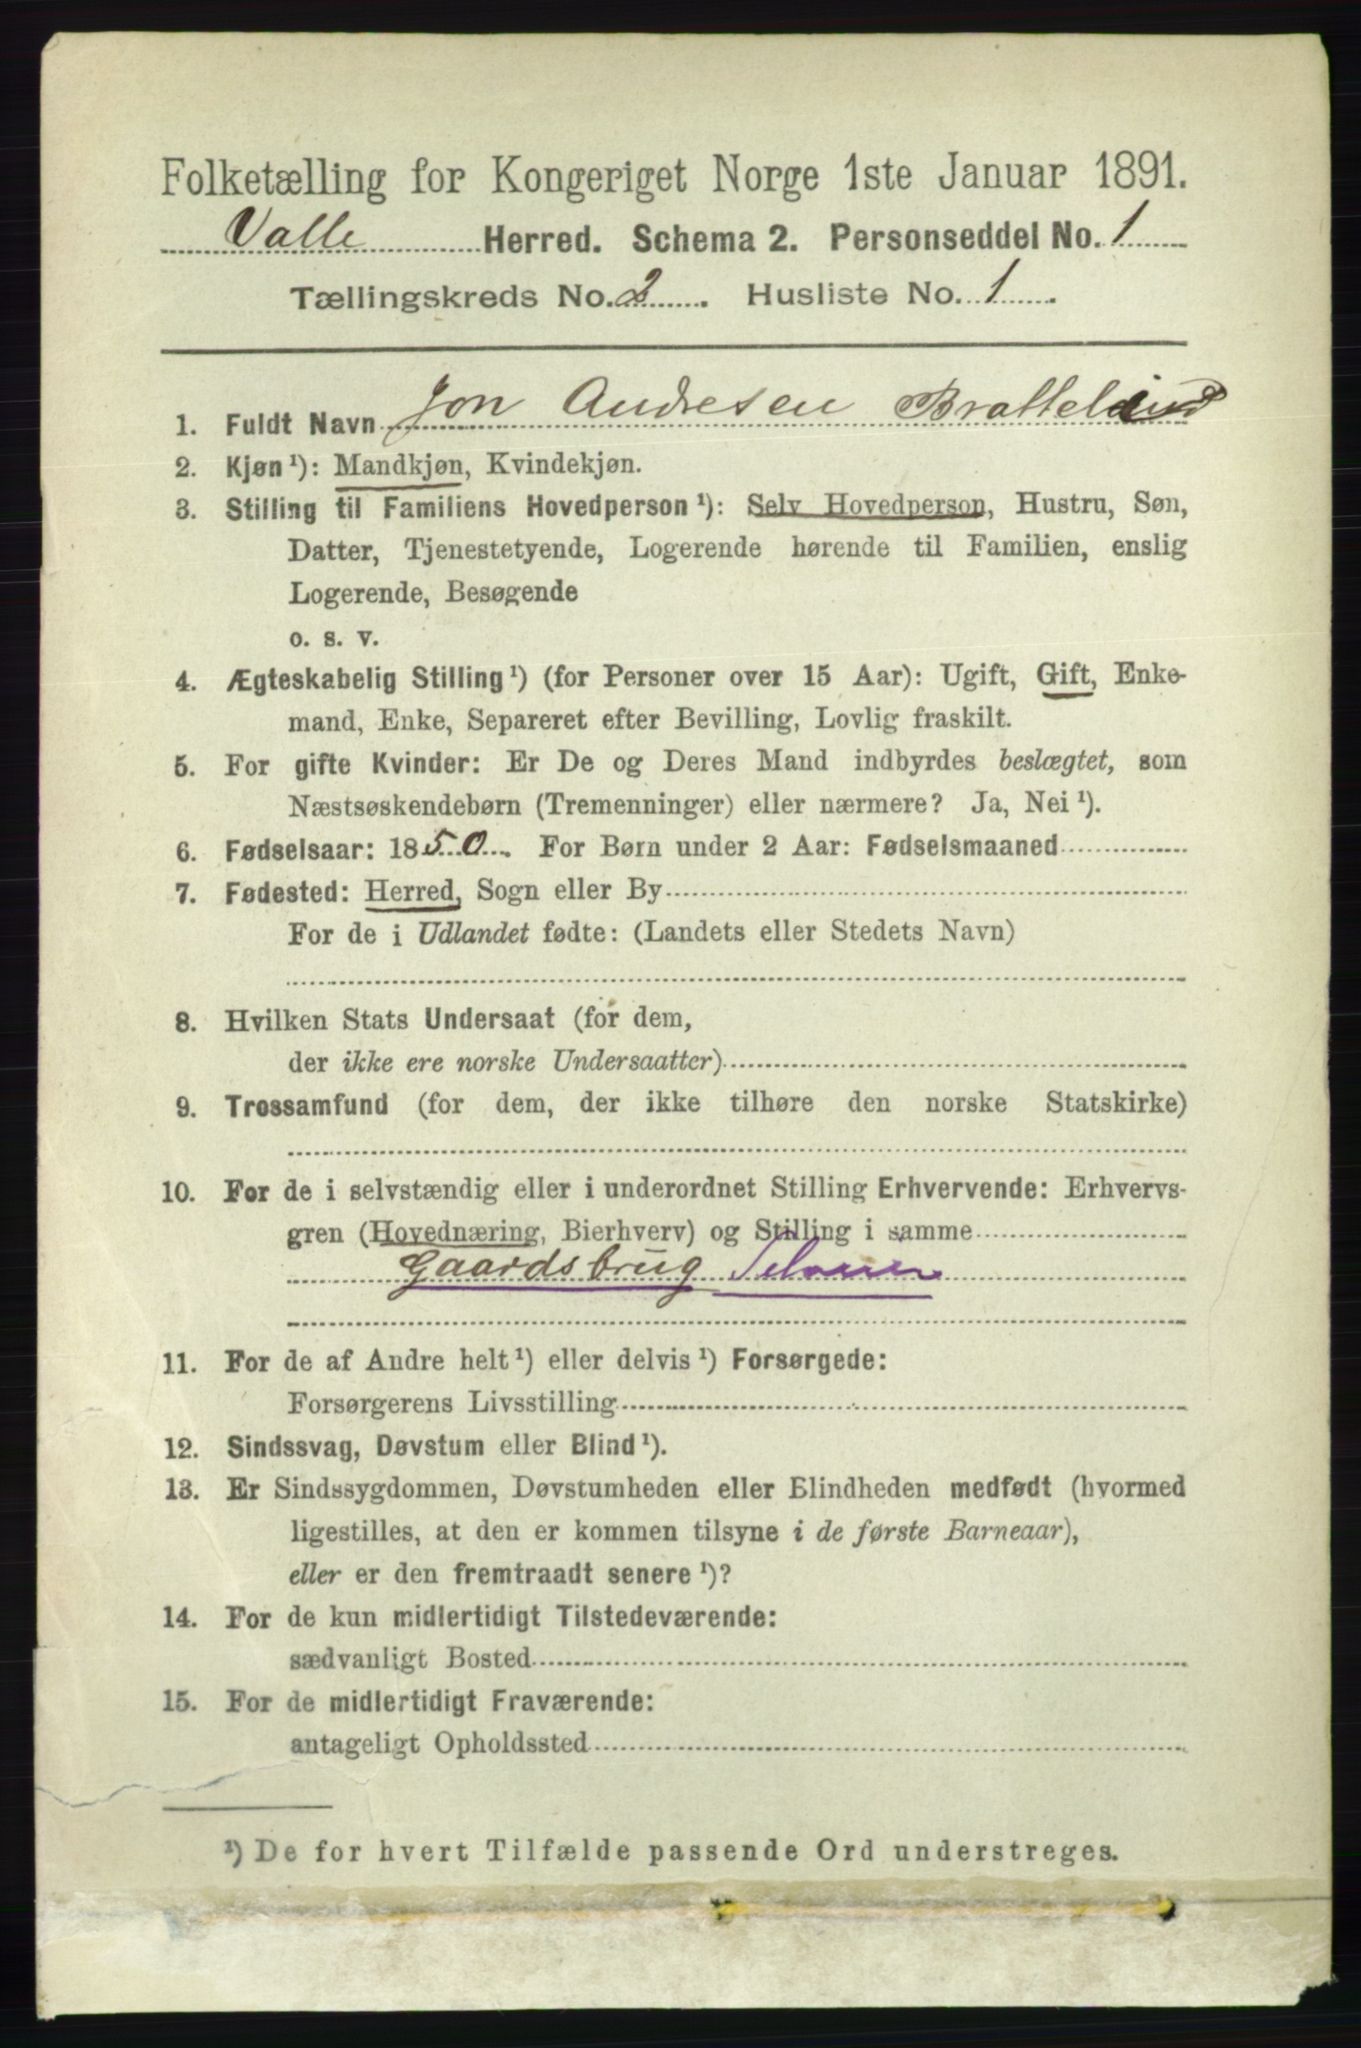 Folketælling for Kongeriget Norge 1ste Januar 1891.
Valle Herred. Schema 2. Personseddel No. 1
Tællingskreds No. 2. Husliste No. 1.
1. Fuldt Navn Jon Andresen Bratteland
2. Kjøn¹): Mandkjøn, Kvindekjøn.
3. Stilling til Familiens Hovedperson¹): Selv Hovedperson, Hustru, Søn,
Datter, Tjenestetyende, Logerende hørende til Familien, enslig
Logerende, Besøgende
o. s. v.
4. Ægteskabelig Stilling¹) (for Personer over 15 Aar): Ugift, Gift, Enke-
mand, Enke, Separeret efter Bevilling, Lovlig fraskilt.
5. For gifte Kvinder: Er De og Deres Mand indbyrdes beslægtet, som
Næstsøskendebørn (Tremenninger) eller nærmere? Ja, Nei¹).
6. Fødselsaar: 1850. For Børn under 2 Aar: Fødselsmaaned
7. Fødested: Herred, Sogn eller By
For de i Udlandet fødte: (Landets eller Stedets Navn)
8. Hvilken Stats Undersaat (for dem,
der ikke ere norske Undersaatter)
9. Trossamfund (for dem, der ikke tilhøre den norske Statskirke)
10. For de i selvstændig eller i underordnet Stilling Erhvervende: Erhvervs-
gren (Hovednæring, Bierhverv) og Stilling i samme
Gaardsbrug Selveier
11. For de af Andre helt¹) eller delvis¹) Forsørgede:
Forsørgerens Livsstilling
12. Sindssvag, Døvstum eller Blind¹).
13. Er Sindssygdommen, Døvstumheden eller Blindheden medfødt (hvormed
ligestilles, at den er kommen tilsyne i de første Barneaar),
eller er den fremtraadt senere¹)?
14. For de kun midlertidigt Tilstedeværende:
sædvanligt Bosted
15. For de midlertidigt Fraværende:
antageligt Opholdssted
¹) De for hvert Tilfælde passende Ord understreges.